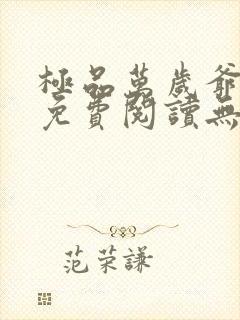 極品萬歲爺
免費閱讀無
范荣謙